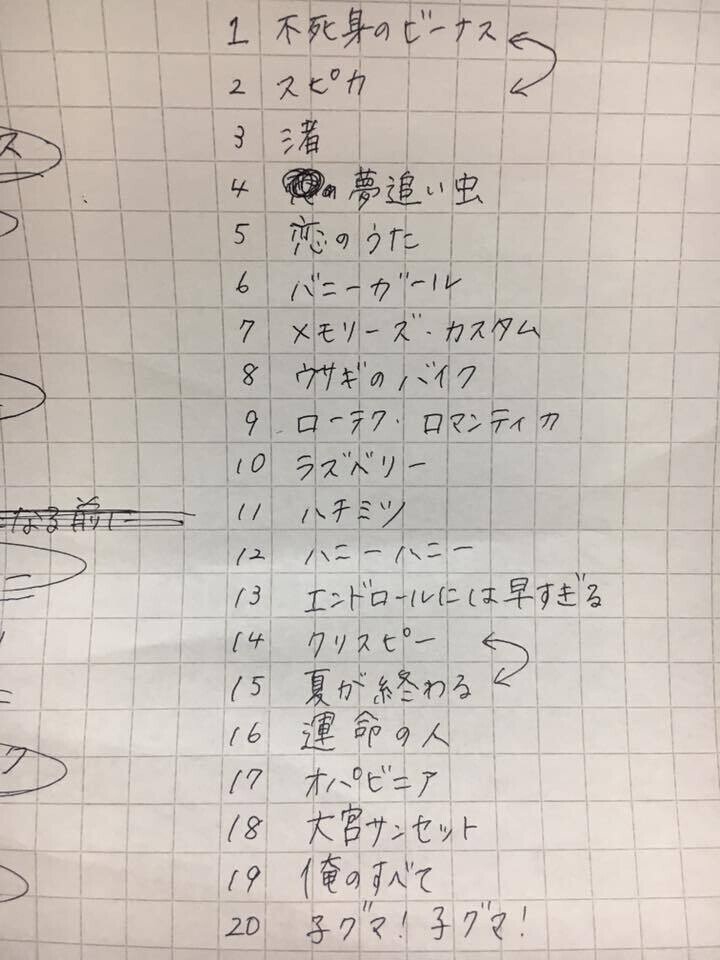 ス
1 不死身のビーナス
2 スピカ
3 渚
4 夢追い虫
5 恋のうた
6 バニーガール
7 メモリーズ・カスタム
8 ウサギのバイク
9 ローテク・ロマンティカ
10 ラズベリー
11 ハチミツ
になる前に
12 ハニーハニー
13 エンドロールには早すぎる
14 クリスピー
15 夏が終わる
16 運命の人
ク
17 オパビニア
18 大宮サンセット
19 俺のすべて
20 子グマ!子グマ!